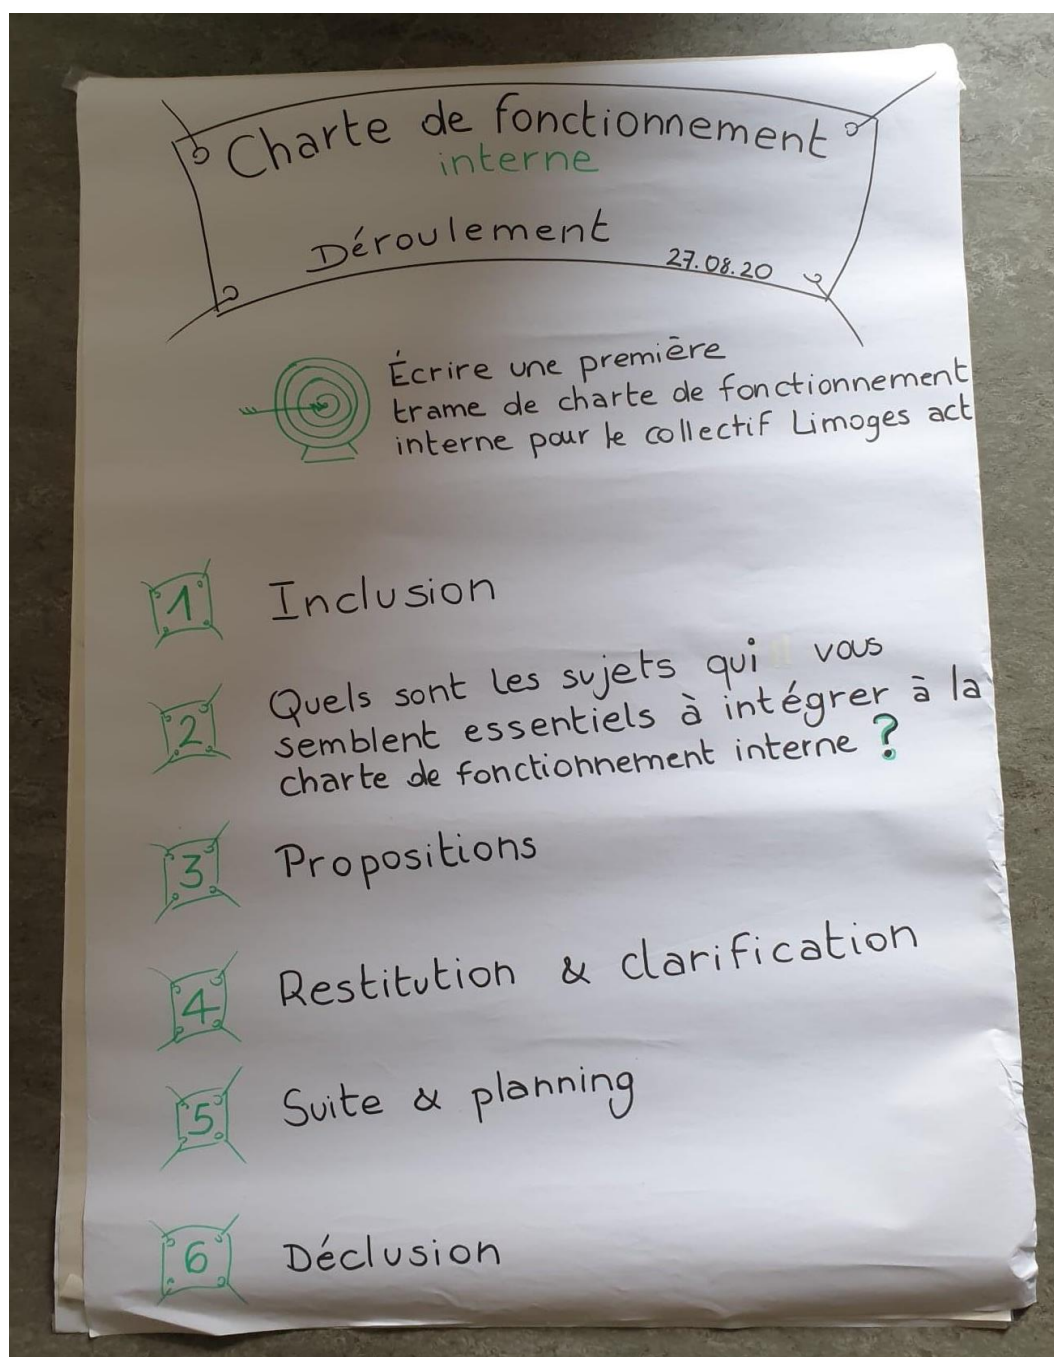 Charte de fonctionnement
interne
Déroulement
27.08.20
Écrire une première
trame de charte de fonctionnement
interne pour le collectif Limoges act
1 Inclusion
2 Quels sont les sujets qui vous
semblent essentiels à intégrer à la
charte de fonctionnement interne ?
3 Propositions
4 Restitution & clarification
5 Suite & planning
6 Déclusion